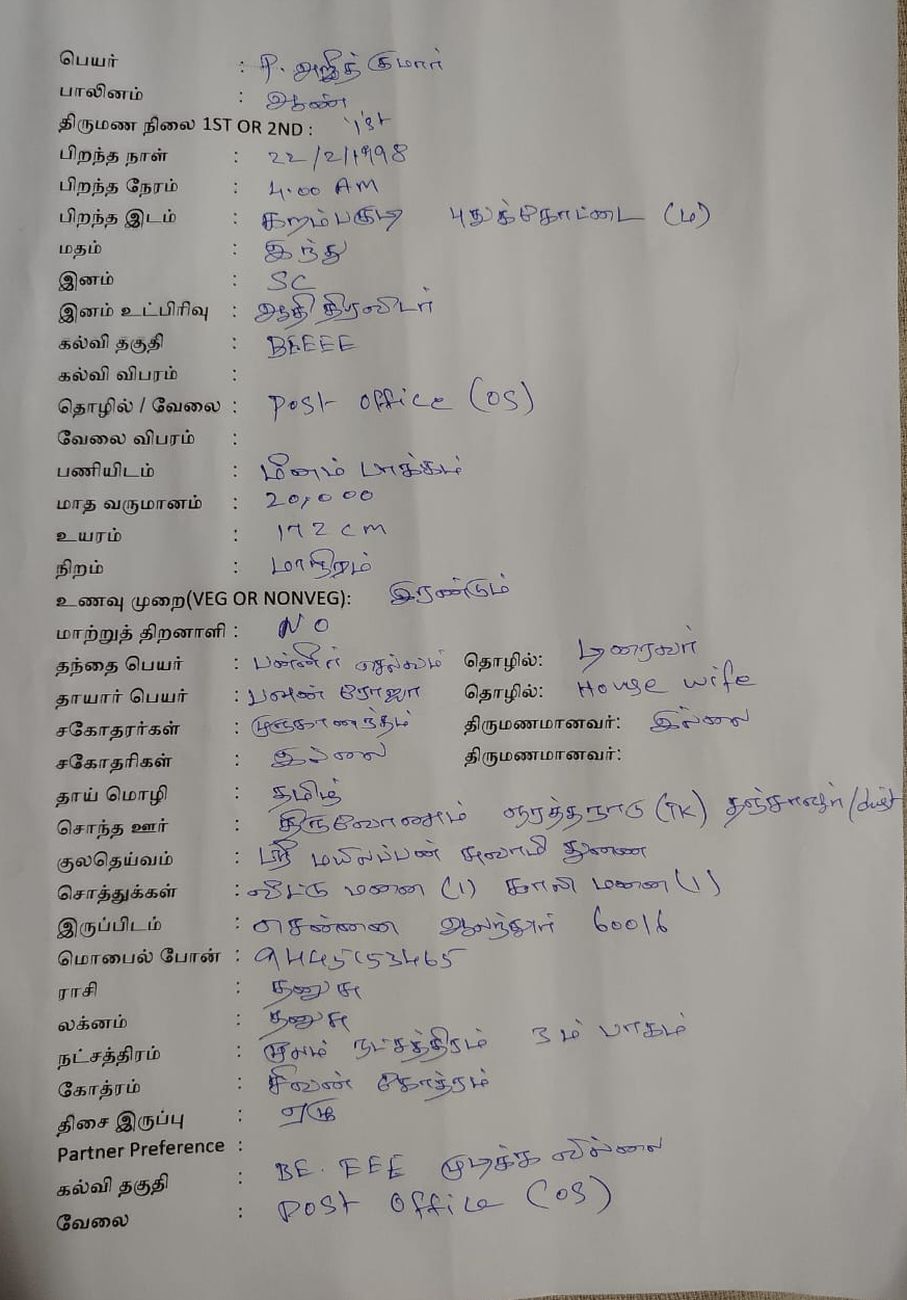 பெயர் : P. அஜீத் குமார்
பாலினம் : ஆண்
திருமண நிலை 1ST OR 2ND : 1st
பிறந்த நாள் : 22/2/1998
பிறந்த நேரம் : 4.00 AM
பிறந்த இடம் : கறம்பகுடி புதுக்கோட்டை (மா)
மதம் : இந்து
இனம் : SC
இனம் உட்பிரிவு : ஆதி திராவிடர்
கல்வி தகுதி : BEEEE
கல்வி விபரம் :
தொழில் / வேலை : Post office (OS)
வேலை விபரம் :
பணியிடம் : மீனம் பாக்கம்
மாத வருமானம் : 20,000
உயரம் : 172 cm
நிறம் : மாநிறம்
உணவு முறை(VEG OR NONVEG): இரண்டும்
மாற்றுத் திறனாளி : NO
தந்தை பெயர் : பன்னீர் செல்வம் தொழில்: டிரைவர்
தாயார் பெயர் : பவுன் ரோஜா தொழில்: House wife
சகோதரர்கள் : முருகானந்தம் திருமணமானவர்: இல்லை
சகோதரிகள் : இல்லை திருமணமானவர்:
தாய் மொழி : தமிழ்
சொந்த ஊர் : திருவோணம் ஒரத்தநாடு (TK) தஞ்சாவூர் / dist
குலதெய்வம் : ஸ்ரீ மயிலப்பன் சுவாமி துணை
சொத்துக்கள் : வீட்டு மனை (1) காலி மனை (1)
இருப்பிடம் : சென்னை ஆலந்தூர் 60016
மொபைல் போன் : 9445153465
ராசி : தனுசு
லக்னம் : தனுசு
நட்சத்திரம் : மூலம் நட்சத்திரம் 3ம் பாகம்
கோத்ரம் : சிவன் கோத்ரம்
திசை இருப்பு : ஏழு
Partner Preference :
கல்வி தகுதி : BE. EEE முடிக்க வில்லை
வேலை : Post office (OS)